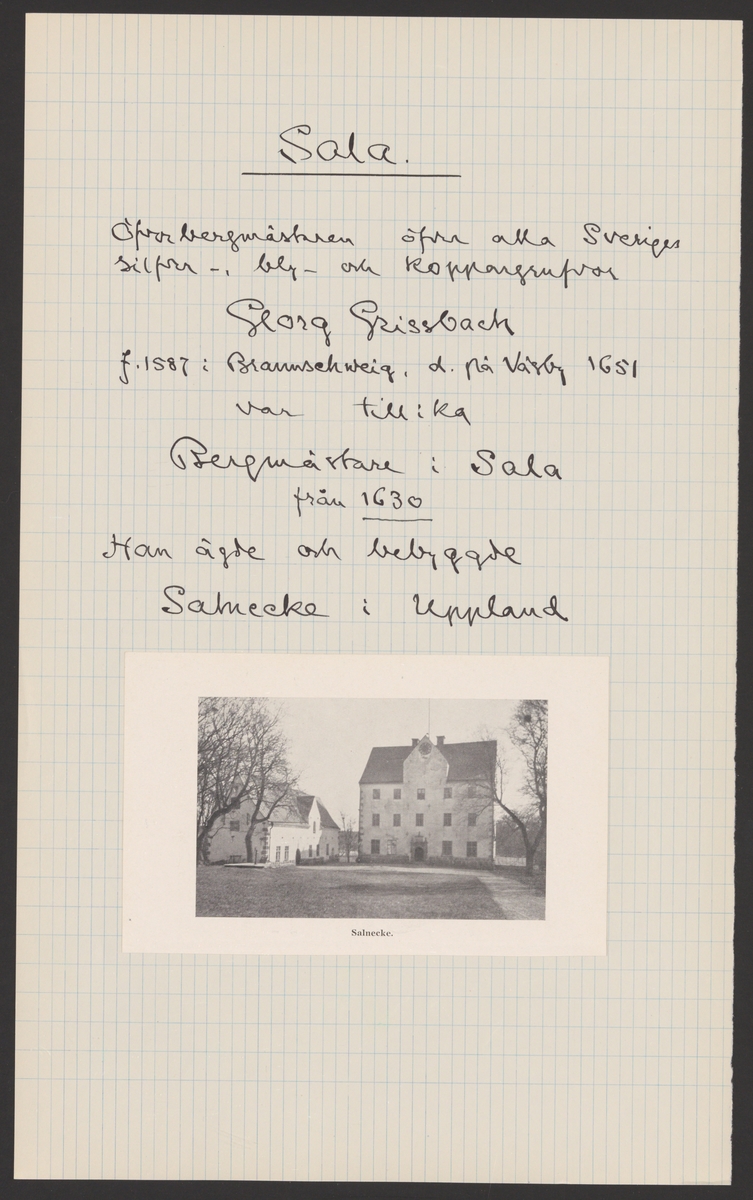 Sala.
Öfverbergmästaren öfver alla Sveriges
silfver-, bly- och koppargrufvor
Georg Grissbach
f. 1587 i Braunschweig, d. på Väsby 1651
var tillika
Bergmästare i Sala
från 1630
Han ägde och bebyggde
Salnecke i Uppland
Salnecke.